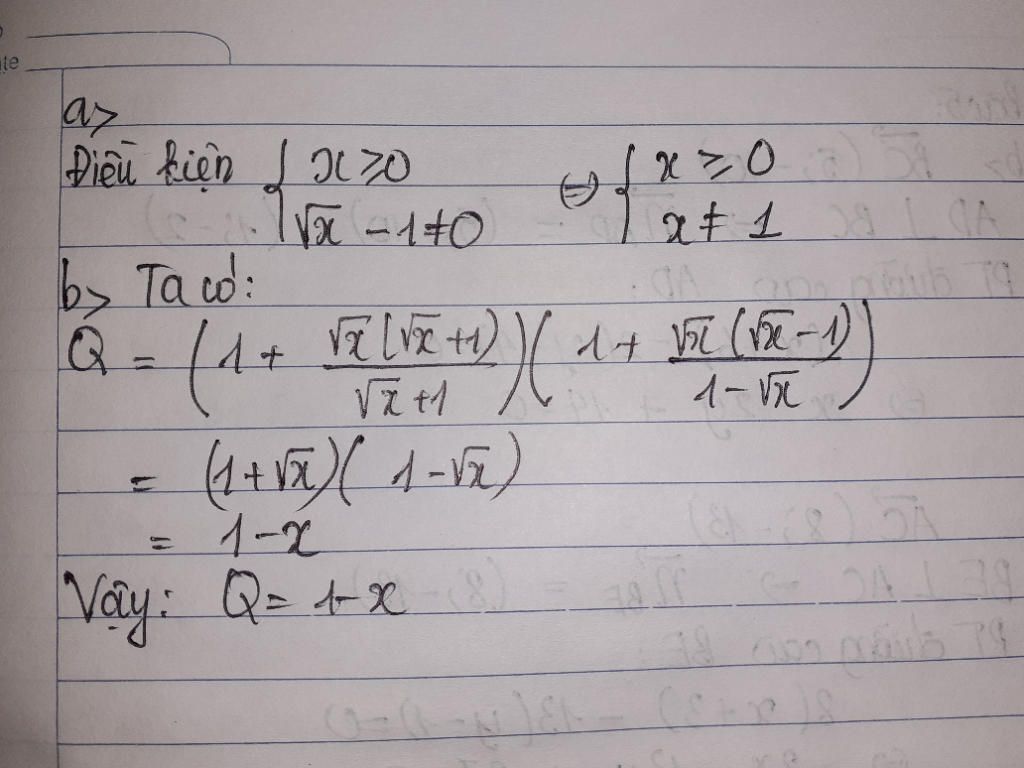 a>
Điều kiện { x ≥ 0 ⇔ { x ≥ 0
√x - 1 ≠ 0 x ≠ 1
b> Ta có:
Q = (1 + √x(√x+1)/(√x+1))(1 + √x(√x-1)/(1-√x))
= (1+√x)(1-√x)
= 1-x
Vậy: Q = 1-x